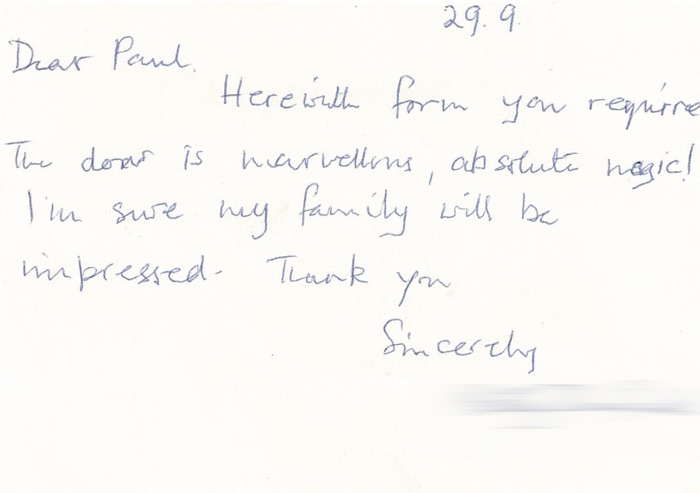 29.9.
Dear Paul.
Herewith form you require
The door is marvellous, absolute magic!
I'm sure my family will be
impressed. Thank you
Sincerely